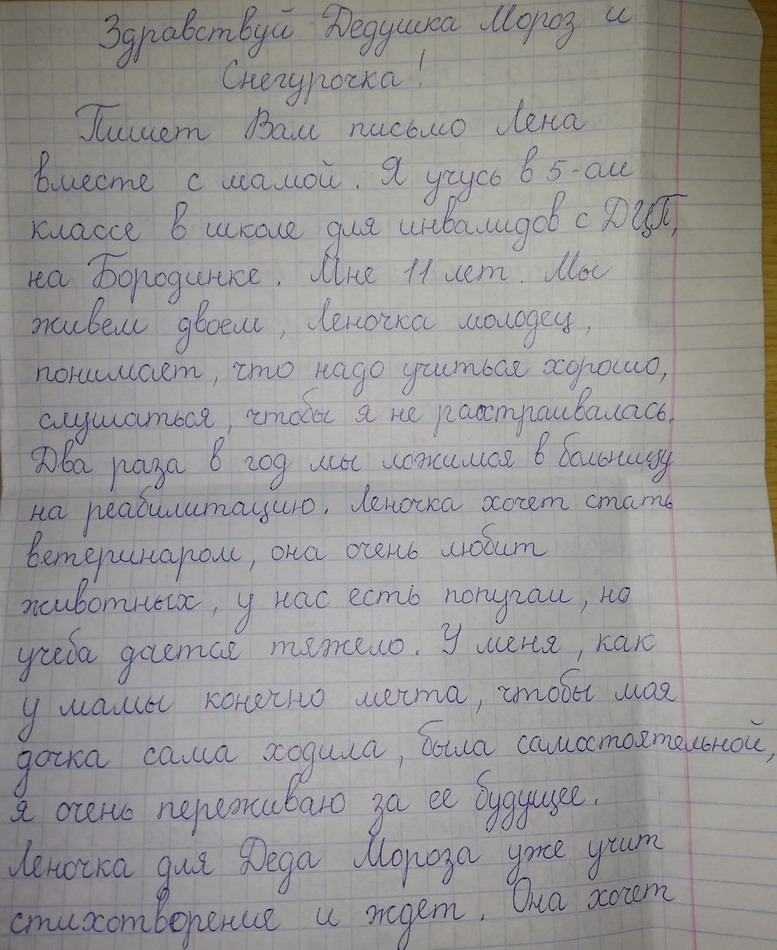 Здравствуй Дедушка Мороз и
Снегурочка!
Пишет Вам письмо Лена
вместе с мамой. Я учусь в 5-ом
классе в школе для инвалидов с ДЦП,
на Бородинке. Мне 11 лет. Мы
живем двоем, Леночка молодец,
понимает, что надо учиться хорошо,
слушаться, чтобы я не расстраивалась.
Два раза в год мы ложимся в больницу
на реабилитацию. Леночка хочет стать
ветеринаром, она очень любит
животных, у нас есть попугаи, но
учеба дается тяжело. У меня, как
у мамы конечно мечта, чтобы моя
дочка сама ходила, была самостоятельной,
я очень переживаю за ее будущее.
Леночка для Деда Мороза уже учит
стихотворения и ждет. Она хочет